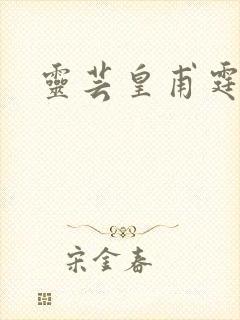 靈芸皇甫霆
宋金春